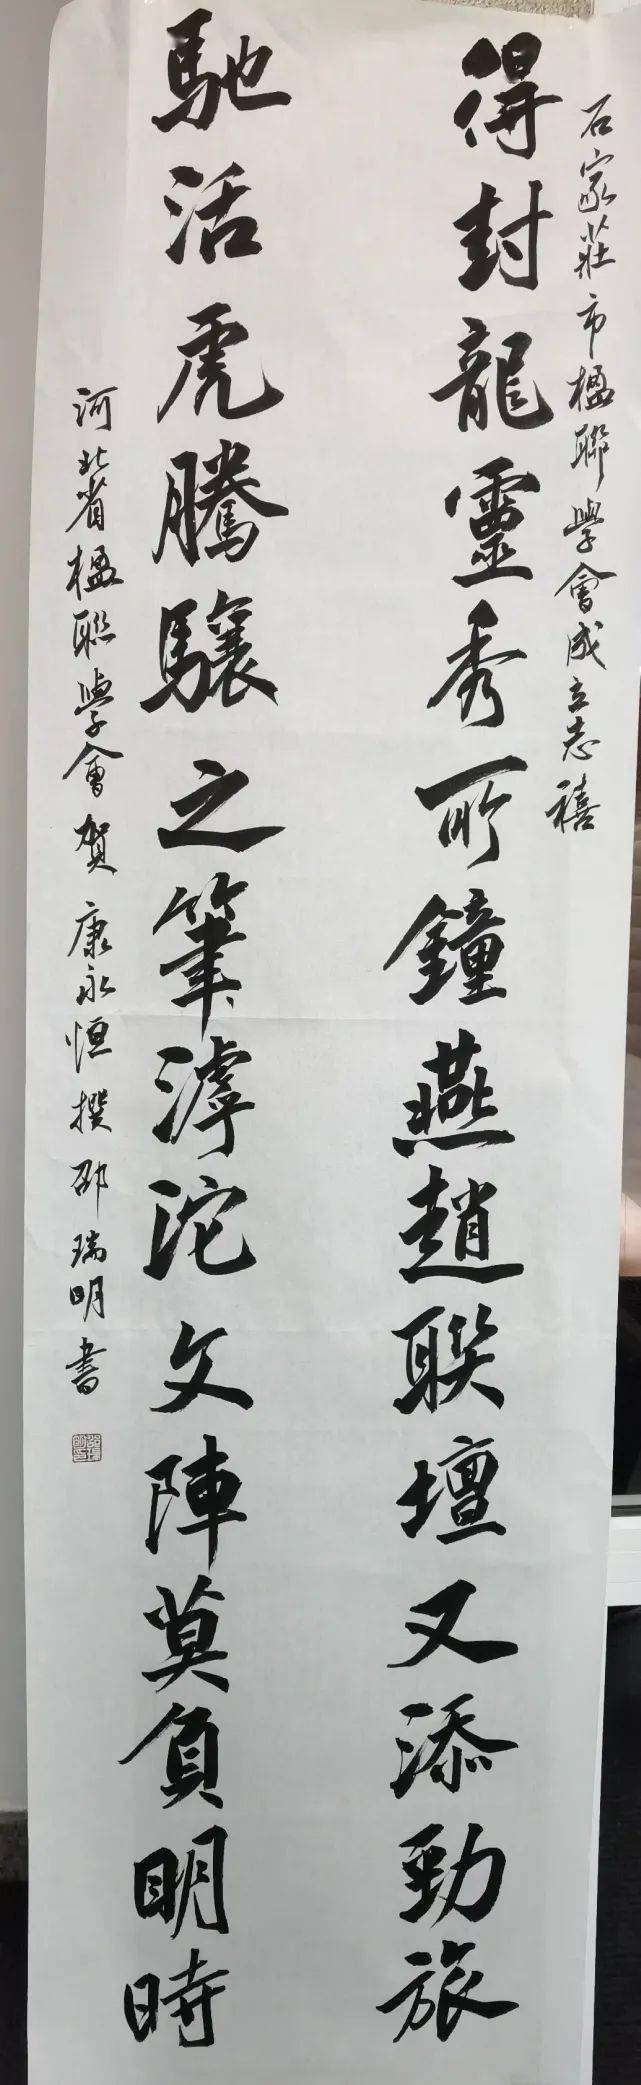 石家莊市楹聯學會成立志禧
得封龍靈秀所鐘燕趙聯壇又添勁旅
馳活虎騰驤之筆滹沱文陣莫負明時
河北省楹聯學會賀 康永恒撰 邵瑞明書